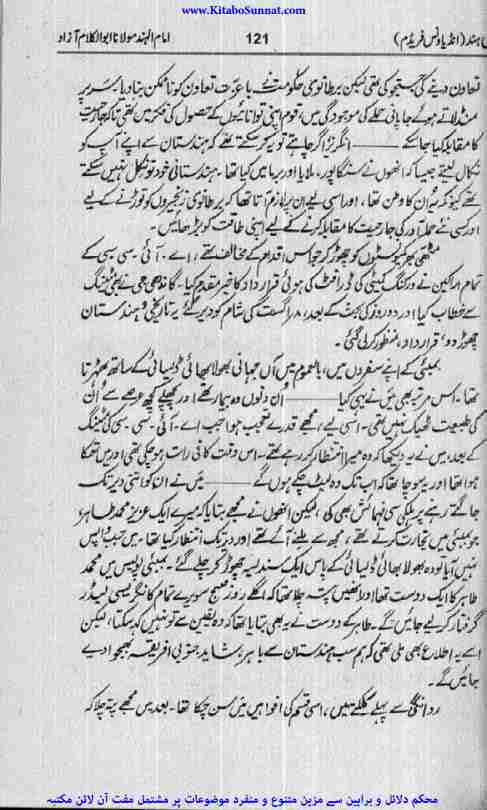 www.KitaboSunnat.com
ہند (انڈیا ونس فریڈم) 121 امام الہند مولانا ابوالکلام آزاد
تعاون دینے کی جستجو کی تھی لیکن برطانوی حکومت نے باعزت تعاون کو ناممکن بنا دیا۔ سر پر
منڈلاتے ہوئے جاپانی حملے کی موجودگی میں، قوم اپنی توانائیوں کے حصول کی فکر میں تھی تاکہ جارحیت
کا مقابلہ کیا جا سکے ——— انگریز اگر چاہتے تو یہ کر سکتے تھے کہ ہندستان سے اپنے آپ کو
نکال لیتے جیسا کہ انھوں نے سنگاپور، ملایا اور برما میں کیا تھا۔ ہندستانی خود تو نکل نہیں سکتے
تھے کیونکہ یہ اُن کا وطن تھا، اور اسی لیے ان پر لازم آتا تھا کہ برطانوی زنجیروں کو توڑنے کے لیے
اور کسی نئے حملہ آور کی جارحیت کا مقابلہ کرنے کے لیے اپنی طاقت کو بڑھائیں۔
مٹھی بھر کمیونسٹوں کو چھوڑ کر جو اس اقدام کے مخالف تھے، اے۔ آئی۔ سی۔ سی کے
تمام اراکین نے ورکنگ کمیٹی کی ڈرافٹ کی ہوئی قرارداد کا خیر مقدم کیا۔ گاندھی جی نے بھی میٹنگ
سے خطاب کیا اور دو روز کی بحث کے بعد، ۸ اگست کی شام کو دیر گئے یہ تاریخی 'ہندستان
چھوڑ دو' قرارداد، منظور کر لی گئی۔
بمبئی کے اپنے سفروں میں، بالعموم میں آں جہانی بھولا بھائی ڈیسائی کے ساتھ ٹھہرتا
تھا۔ اس مرتبہ بھی میں نے یہی کیا ——— اُن دنوں وہ بیمار تھے اور پچھلے کچھ عرصے سے اُن
کی طبیعت ٹھیک نہیں تھی۔ اسی لیے، مجھے قدرے تعجب ہوا جب اے۔ آئی۔ سی۔ سی کی میٹنگ
کے بعد، میں نے یہ دیکھا کہ وہ میرا انتظار کر رہے تھے۔ اس وقت کافی رات ہو چکی تھی اور میں تھکا
ہوا تھا اور یہ سوچا تھا کہ اب تک وہ لیٹ چکے ہوں گے ——— میں نے ان کو اتنی دیر تک
جاگتے رہنے پر ہلکی سی فہمائش بھی کی، لیکن انھوں نے مجھے بتایا کہ میرے ایک عزیز محمد طاہر،
جو بمبئی میں تجارت کرتے تھے، مجھ سے ملنے آئے تھے اور دیر تک انتظار کیا تھا۔ میں جب واپس
نہیں آیا تو وہ بھولا بھائی ڈیسائی کے پاس ایک سندیسہ چھوڑ کر چلے گئے۔ بمبئی پولیس میں محمد
طاہر کا ایک دوست تھا اور انھیں پتہ چلا تھا کہ اگلے روز صبح سویرے تمام کانگریسی لیڈر
گرفتار کر لیے جائیں گے۔ طاہر کے دوست نے یہ بھی بتایا تھا کہ وہ یقین سے تو نہیں کہہ سکتا، لیکن
اسے یہ اطلاع بھی ملی تھی کہ ہم سب ہندستان سے باہر، شاید جنوبی افریقہ، بھیجوا دیے
جائیں گے۔
روانگی سے پہلے کلکتے میں، اسی قسم کی افواہیں میں سن چکا تھا۔ بعد میں مجھے پتہ چلا کہ
محکم دلائل و براہین سے مزین متنوع و منفرد موضوعات پر مشتمل مفت آن لائن مکتبہ